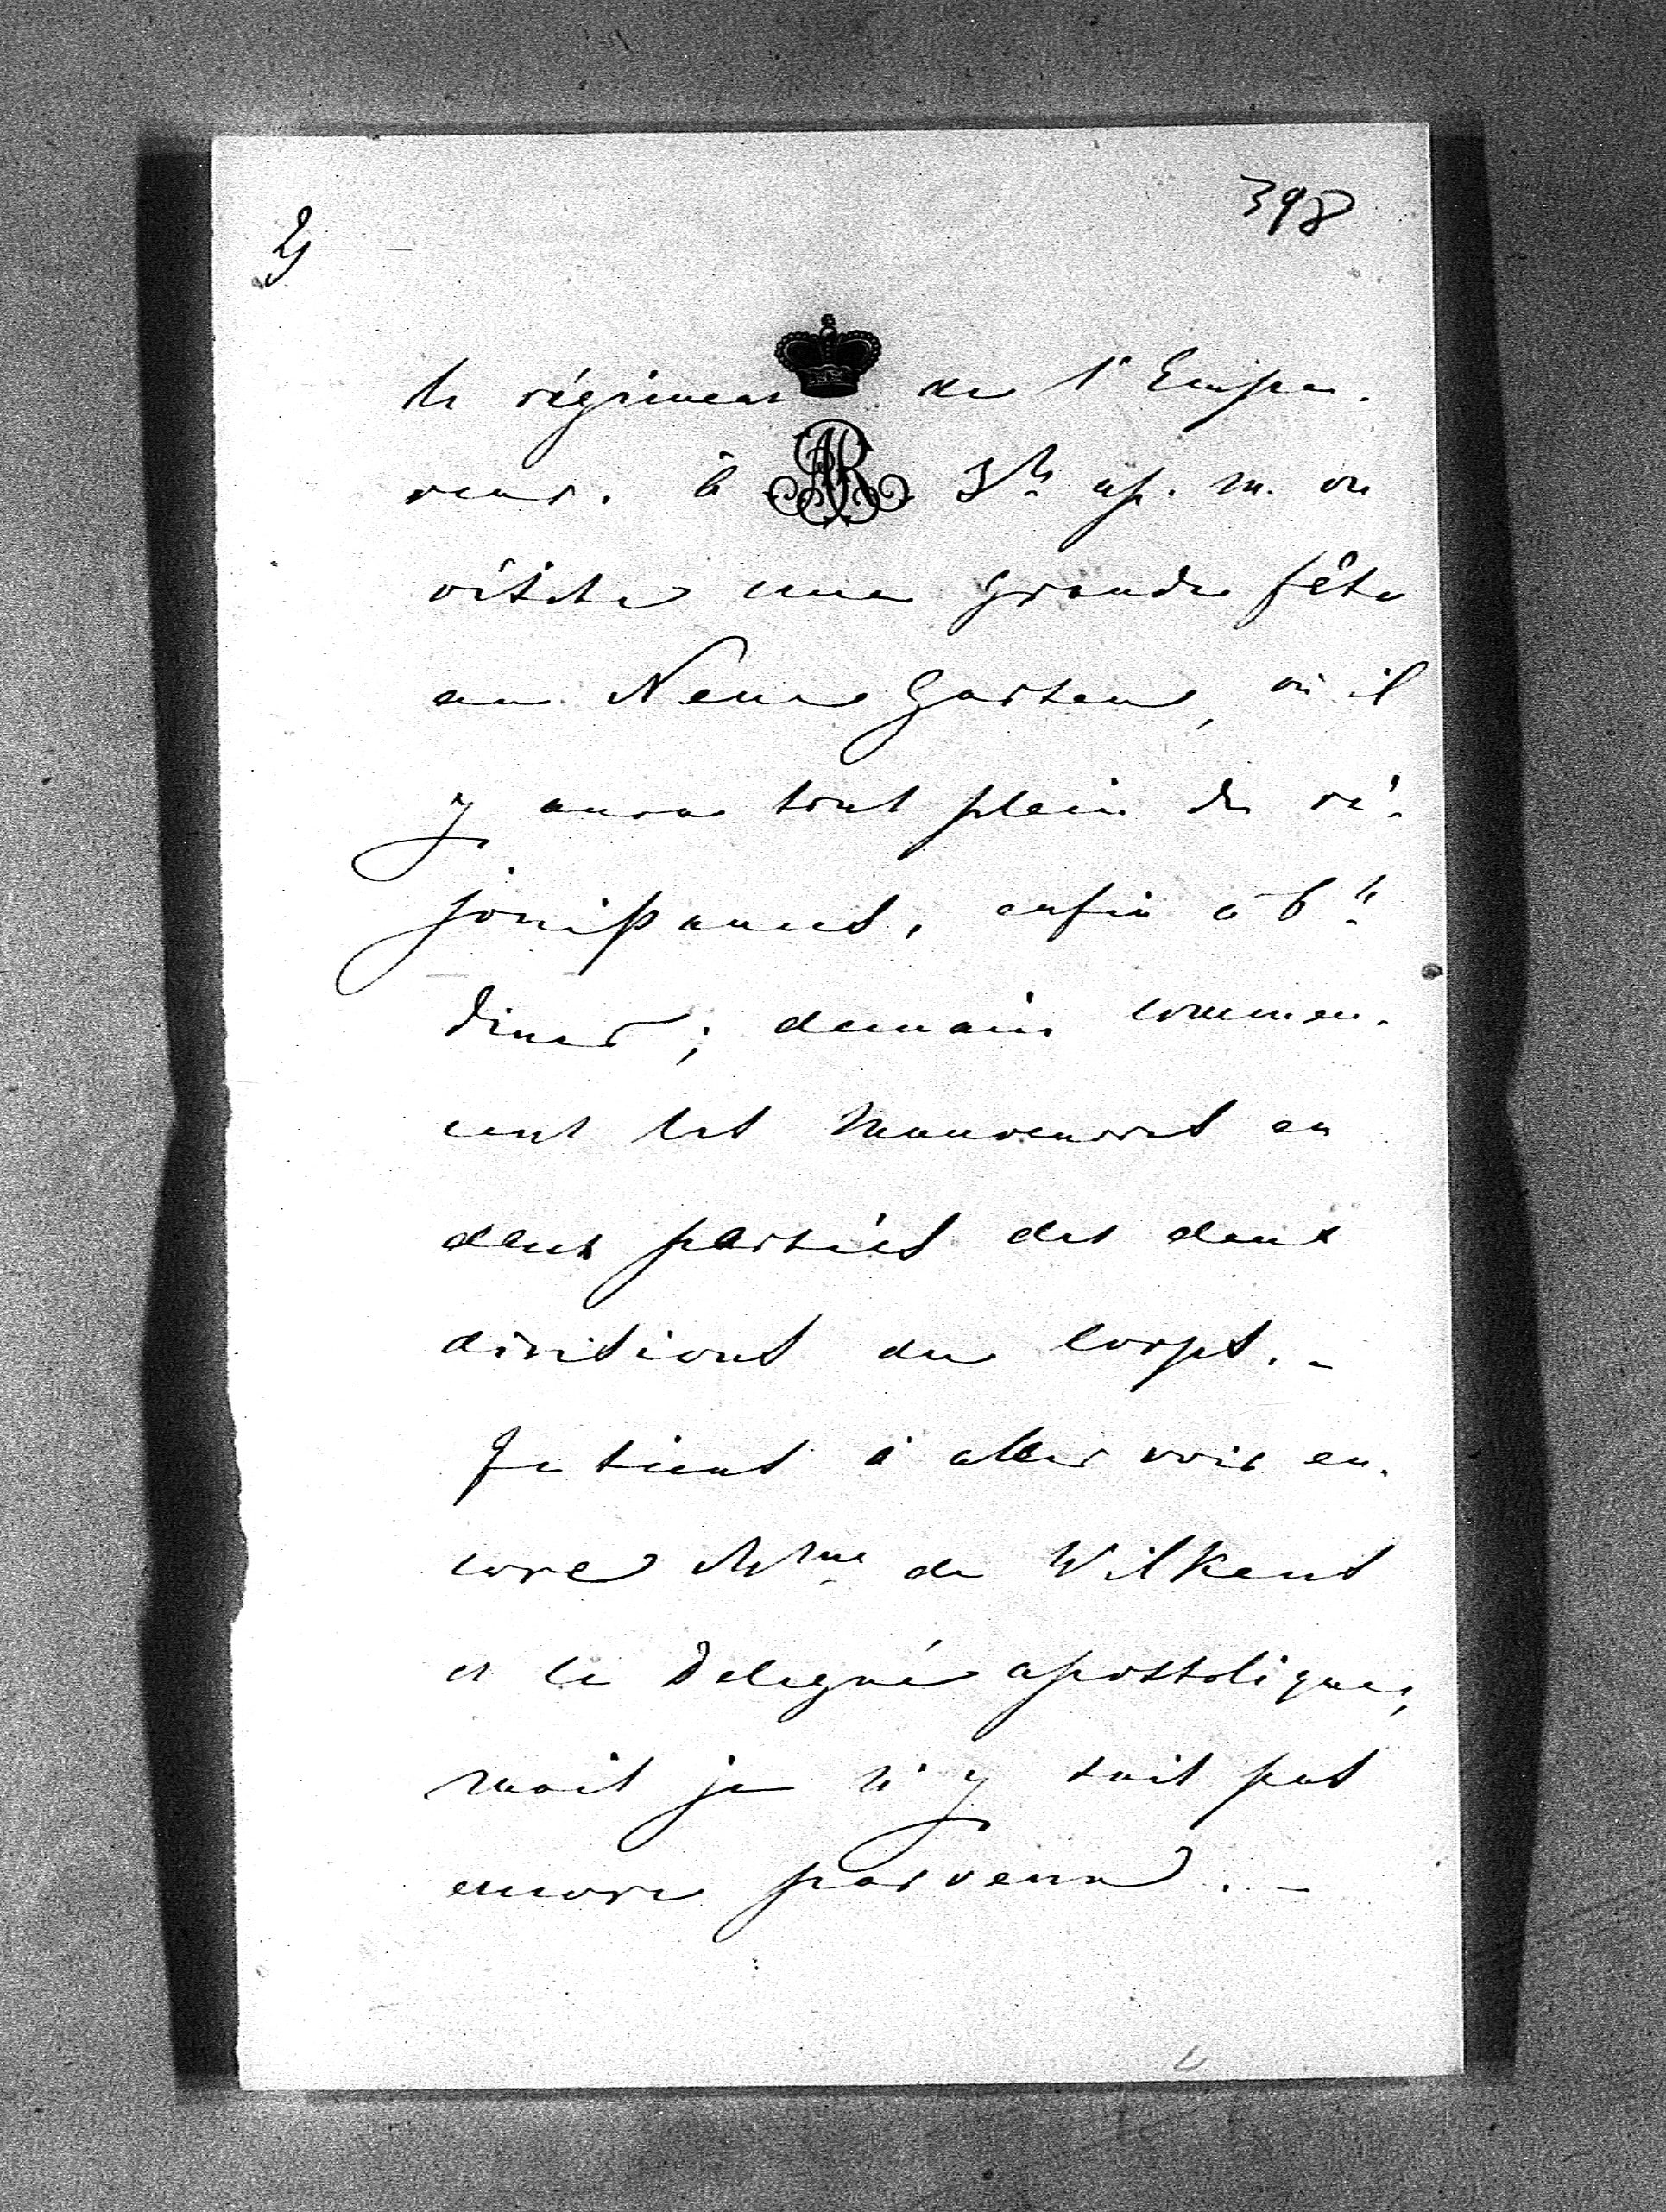 2)
398
le régiment de l'Empe-
reur. à 3h ap. m. on
visite une grande fête
au Neue Garten, où il
y aura tout plein de ré-
jouissances, enfin à 6h
diner; demain commen-
cent les manoeuvres en
deux parties des deux
divisions du corps. -
Je tiens à aller voir en-
core Mme de Wilkens
et le Delegué apostolique,
mais je n'y suis pas
encore parvenu. -